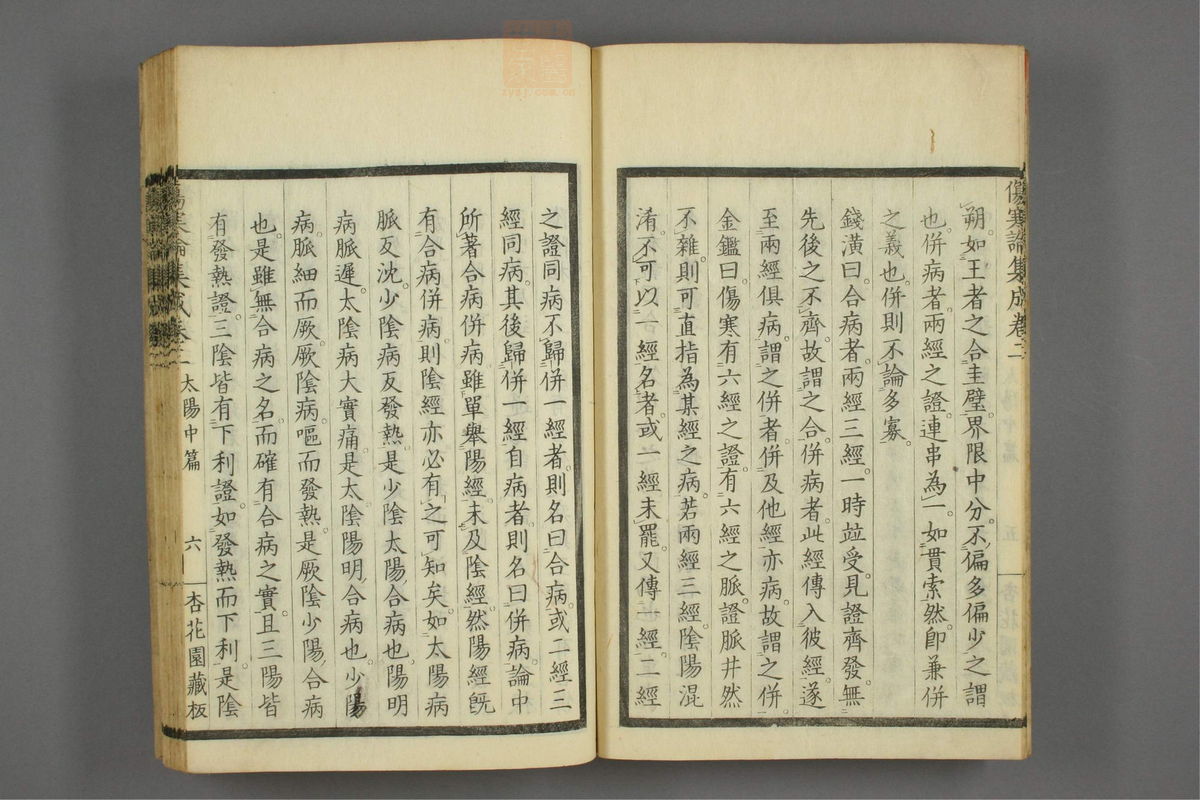 傷寒論集成卷二
朔。如王者之合圭璧界限中分。不偏多偏少之謂
也。併病者。兩經之證。連串為一。如貫索然。卽兼併
之義也。併則不論多寡。
錢潢曰。合病者。兩經三經。一時竝受。見證齊發。無
先後之不齊。故謂之合。併病者。此經傳入彼經。遂
至兩經俱病。謂之併者。併及他經亦病。故謂之併。
金鑑曰。傷寒有六經之證。有六經之脈。證脈井然
不雜。則可直指為某經之病。若兩經三經。陰陽混
淆。不可以一經名者。或一經未罷。又傳一經。二經
之證同病。不歸併一經者。則名曰合病。或二經三
經同病。其後歸併一經自病者。則名曰併病。論中
所著合病併病。雖單舉陽經。未及陰經。然陽經旣
有合病併病。則陰經亦必有之可知矣。如太陽病
脈反沈。少陰病反發熱。是少陰太陽合病也。陽明
病脈遲。太陰病大實痛。是太陰陽明合病也。少陽
病脈細而厥。厥陰病嘔而發熱。是厥陰少陽合病
也。是雖無合病之名。而確有合病之實。且三陽皆
有發熱證。三陰皆有下利證。如發熱而下利。是陰
傷寒論集成卷二 太陽中篇 六 杏花園藏板
zysj.com.cn